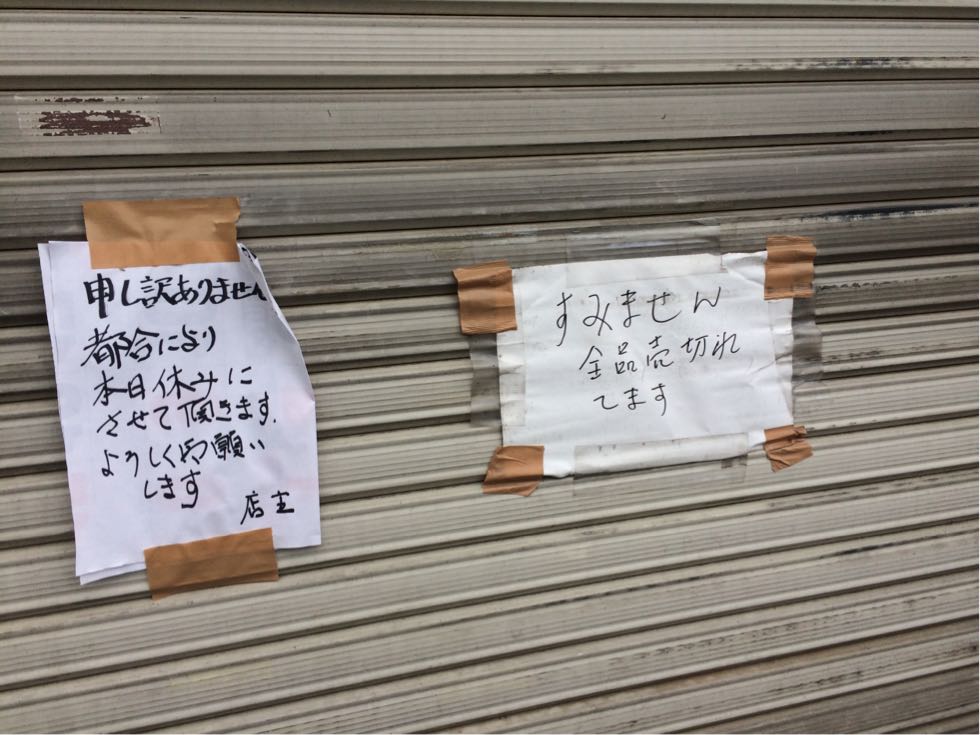 申し訳ありません
都合により
本日休みに
させて頂きます.
よろしくお願い
します
店主
すみません
全品売切れ
てます